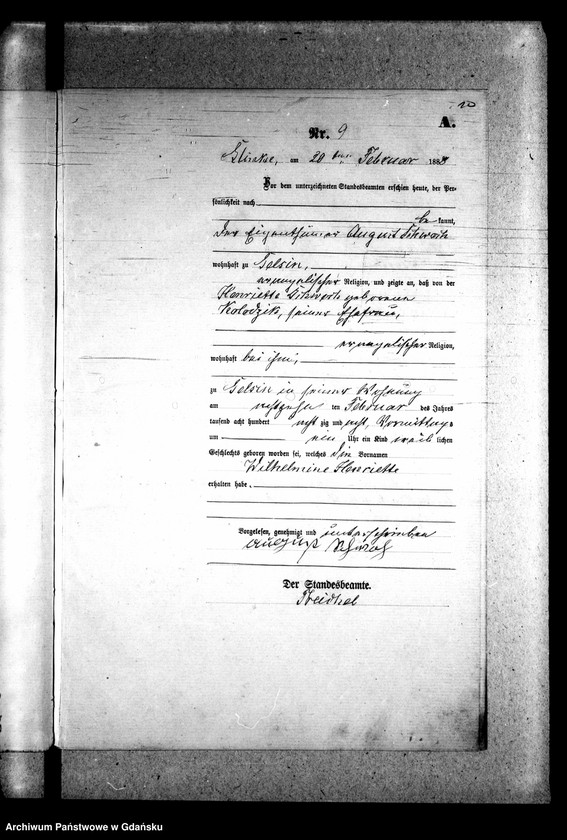 A.
Nr. 9
am 20 ten Februar 1888
Vor dem unterzeichneten Standesbeamten erschien heute, der Per-
sönlichkeit nach
be kannt,
der Eigenthümer August
wohnhaft zu
evangelischer Religion, und zeigte an, daß von der
Henriette geborenen
Kolodzik, seiner Ehefrau,
evangelischer Religion,
wohnhaft bei ihm,
zu in seiner Wohnung
am achtzehn ten Februar des Jahres
tausend acht hundert acht zig und acht, Vormittags
um ein Uhr ein Kind weib lichen
Geschlechts geboren worden sei, welches die Vornamen
Wilhelmine Henriette
erhalten habe.
Vorgelesen, genehmigt und unterschrieben
August
Der Standesbeamte.
Archiwum Państwowe w Gdańsku